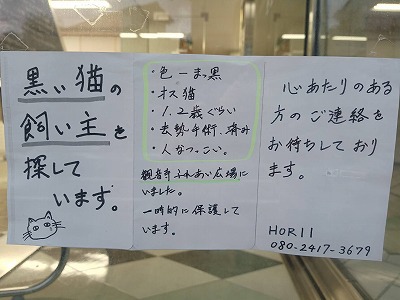 黒い猫の
飼い主を
探して
います。
・色 ー まっ黒
・オス猫
・1、2歳ぐらい
・去勢手術、済み
・人なつっこい。
観音寺ふれあい広場に
いました。
一時的に保護して
います。
心あたりのある
方のご連絡を
お待ちしており
ます。
HORII
080-2417-3679